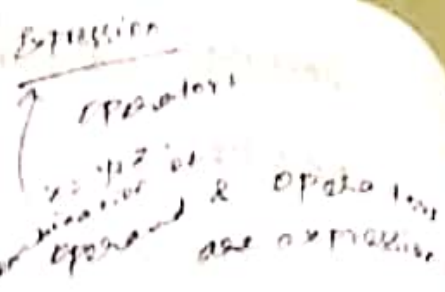 Expression
operators
combination of
operand & operators
are expression